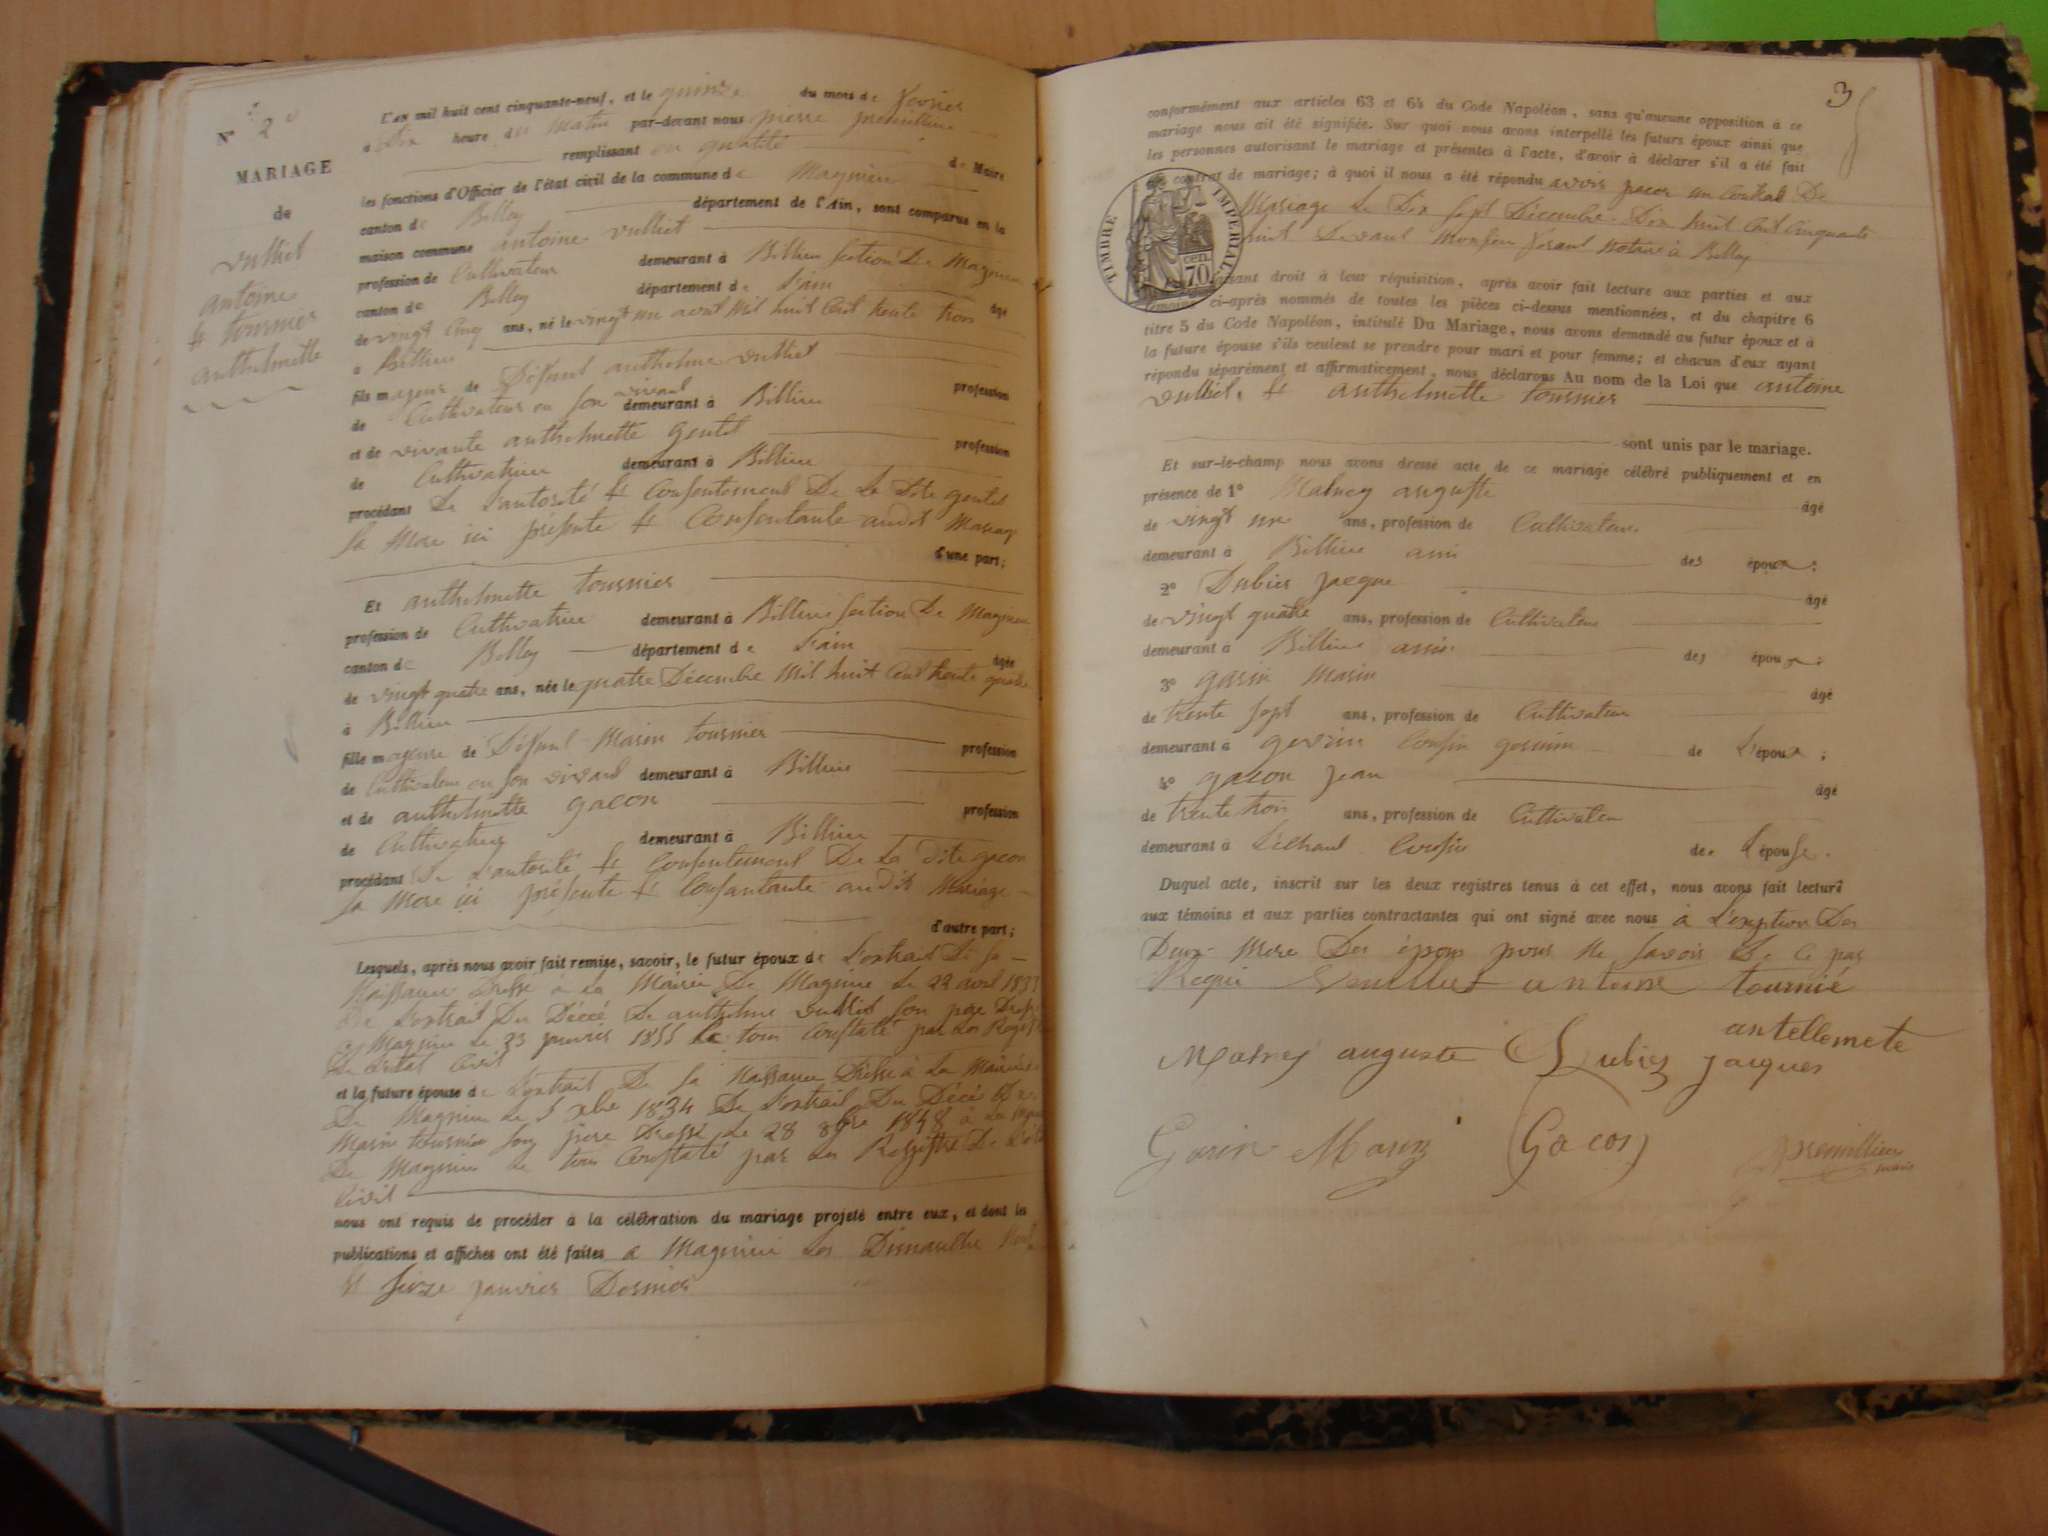 N° 2
MARIAGE
de
vulliet
antoine
& tournier
anthelmette
L'an mil huit cent cinquante-neuf, et le quinze du mois de fevrier
a Dix heure du Matin par-devant nous pierre premillieu
remplissant en qualité de Maire
les fonctions d'Officier de l'état civil de la commune de Magnieu
canton de Belley département de l'Ain, sont comparus en la
maison commune antoine vulliet
profession de Cultivateur demeurant à Billieu section De Magnieu
canton de Belley département de L'ain âgé
de vingt cinq ans, né le vingt un avril Mil huit Cent trente trois
à Billieu
fils majeur de Défunt anthelme vulliet profession
de Cultivateur en son vivant demeurant à Billieu
et de vivante anthelmette gentet profession
de Cultivatrice demeurant à Billieu
procédant De L'autorité & Consentement De La Dite gentet
Sa Mere ici présente & Consentante audit Mariage
d'une part;
Et anthelmette tournier
profession de Cultivatrice demeurant à Billieu section De Magnieu
canton de Belley département de L'ain âgée
de vingt quatre ans, née le quatre Décembre Mil huit Cent trente quatre
à Billieu
fille majeure de Défunt Marin tournier profession
de Cultivateur en son vivant demeurant à Billieu
et de anthelmette gacon profession
de Cultivatrice demeurant à Billieu
procédant De L'autorité & Consentement De La Dite gacon
Sa Mere ici présente & Consantante audit Mariage
d'autre part;
Lesquels, après nous avoir fait remise, savoir, le futur époux de L'extrait De Sa
Naissance Dressé a La Mairie De Magnieu Le 22 avril 1833
De L'extrait Du Décé De anthelme vulliet son père Dressé
a Magnieu Le 23 janvier 1855 Le tout Constaté par Les Registre
De L'état Civil
et la future épouse de L'extrait De Sa Naissance Dressé à La Mairie
De Magnieu Le 5 xbre 1834 De L'extrait Du Décé De
Marin tournier son père Dressé Le 28 8bre 1848 à La Mairie
De Magnieu Le tout Constaté par Les Registre De L'état
Civil
nous ont requis de procéder à la célébration du mariage projeté entre eux, et dont les
publications et affiches ont été faites a Magnieu Les Dimanche Neuf
et seize janvier Dernier
3
conformément aux articles 63 et 64 du Code Napoléon, sans qu'aucune opposition à ce
mariage nous ait été signifiée. Sur quoi nous avons interpellé les futurs époux ainsi que
les personnes autorisant le mariage et présentes à l'acte, d'avoir à déclarer s'il a été fait
contrat de mariage; à quoi il nous a été répondu avoir passé un Contrat De
Mariage Le Dix Sept Décembre Dix huit Cent Cinquante
huit Devant Monsieur notaire à Belley
TIMBRE IMPERIAL
70 cen
faisant droit à leur réquisition, après avoir fait lecture aux parties et aux
témoins ci-après nommés de toutes les pièces ci-dessus mentionnées, et du chapitre 6
titre 5 du Code Napoléon, intitulé Du Mariage, nous avons demandé au futur époux et à
la future épouse s'ils veulent se prendre pour mari et pour femme; et chacun d'eux ayant
répondu séparément et affirmativement, nous déclarons Au nom de la Loi que antoine
vulliet & anthelmette tournier
sont unis par le mariage.
Et sur-le-champ nous avons dressé acte de ce mariage célébré publiquement et en
présence de 1° auguste âgé
de vingt un ans, profession de Cultivateur
demeurant à Billieu ami des époux;
2° Dubier jacque âgé
de vingt quatre ans, profession de Cultivateur
demeurant à Billieu ami des époux;
3° garin Marin âgé
de trente sept ans, profession de Cultivateur
demeurant à Cousin germain de L'époux;
4° gacon jean âgé
de trente trois ans, profession de Cultivateur
demeurant à Cousin de L'épouse.
Duquel acte, inscrit sur les deux registres tenus à cet effet, nous avons fait lecture
aux témoins et aux parties contractantes qui ont signé avec nous à L'exption Des
Deux Mere Des époux pour ne savoir De Ce par
Requi antoine tournié
antellemete
auguste Dubier jacques
Garin Marin Gacon premillieu
maire